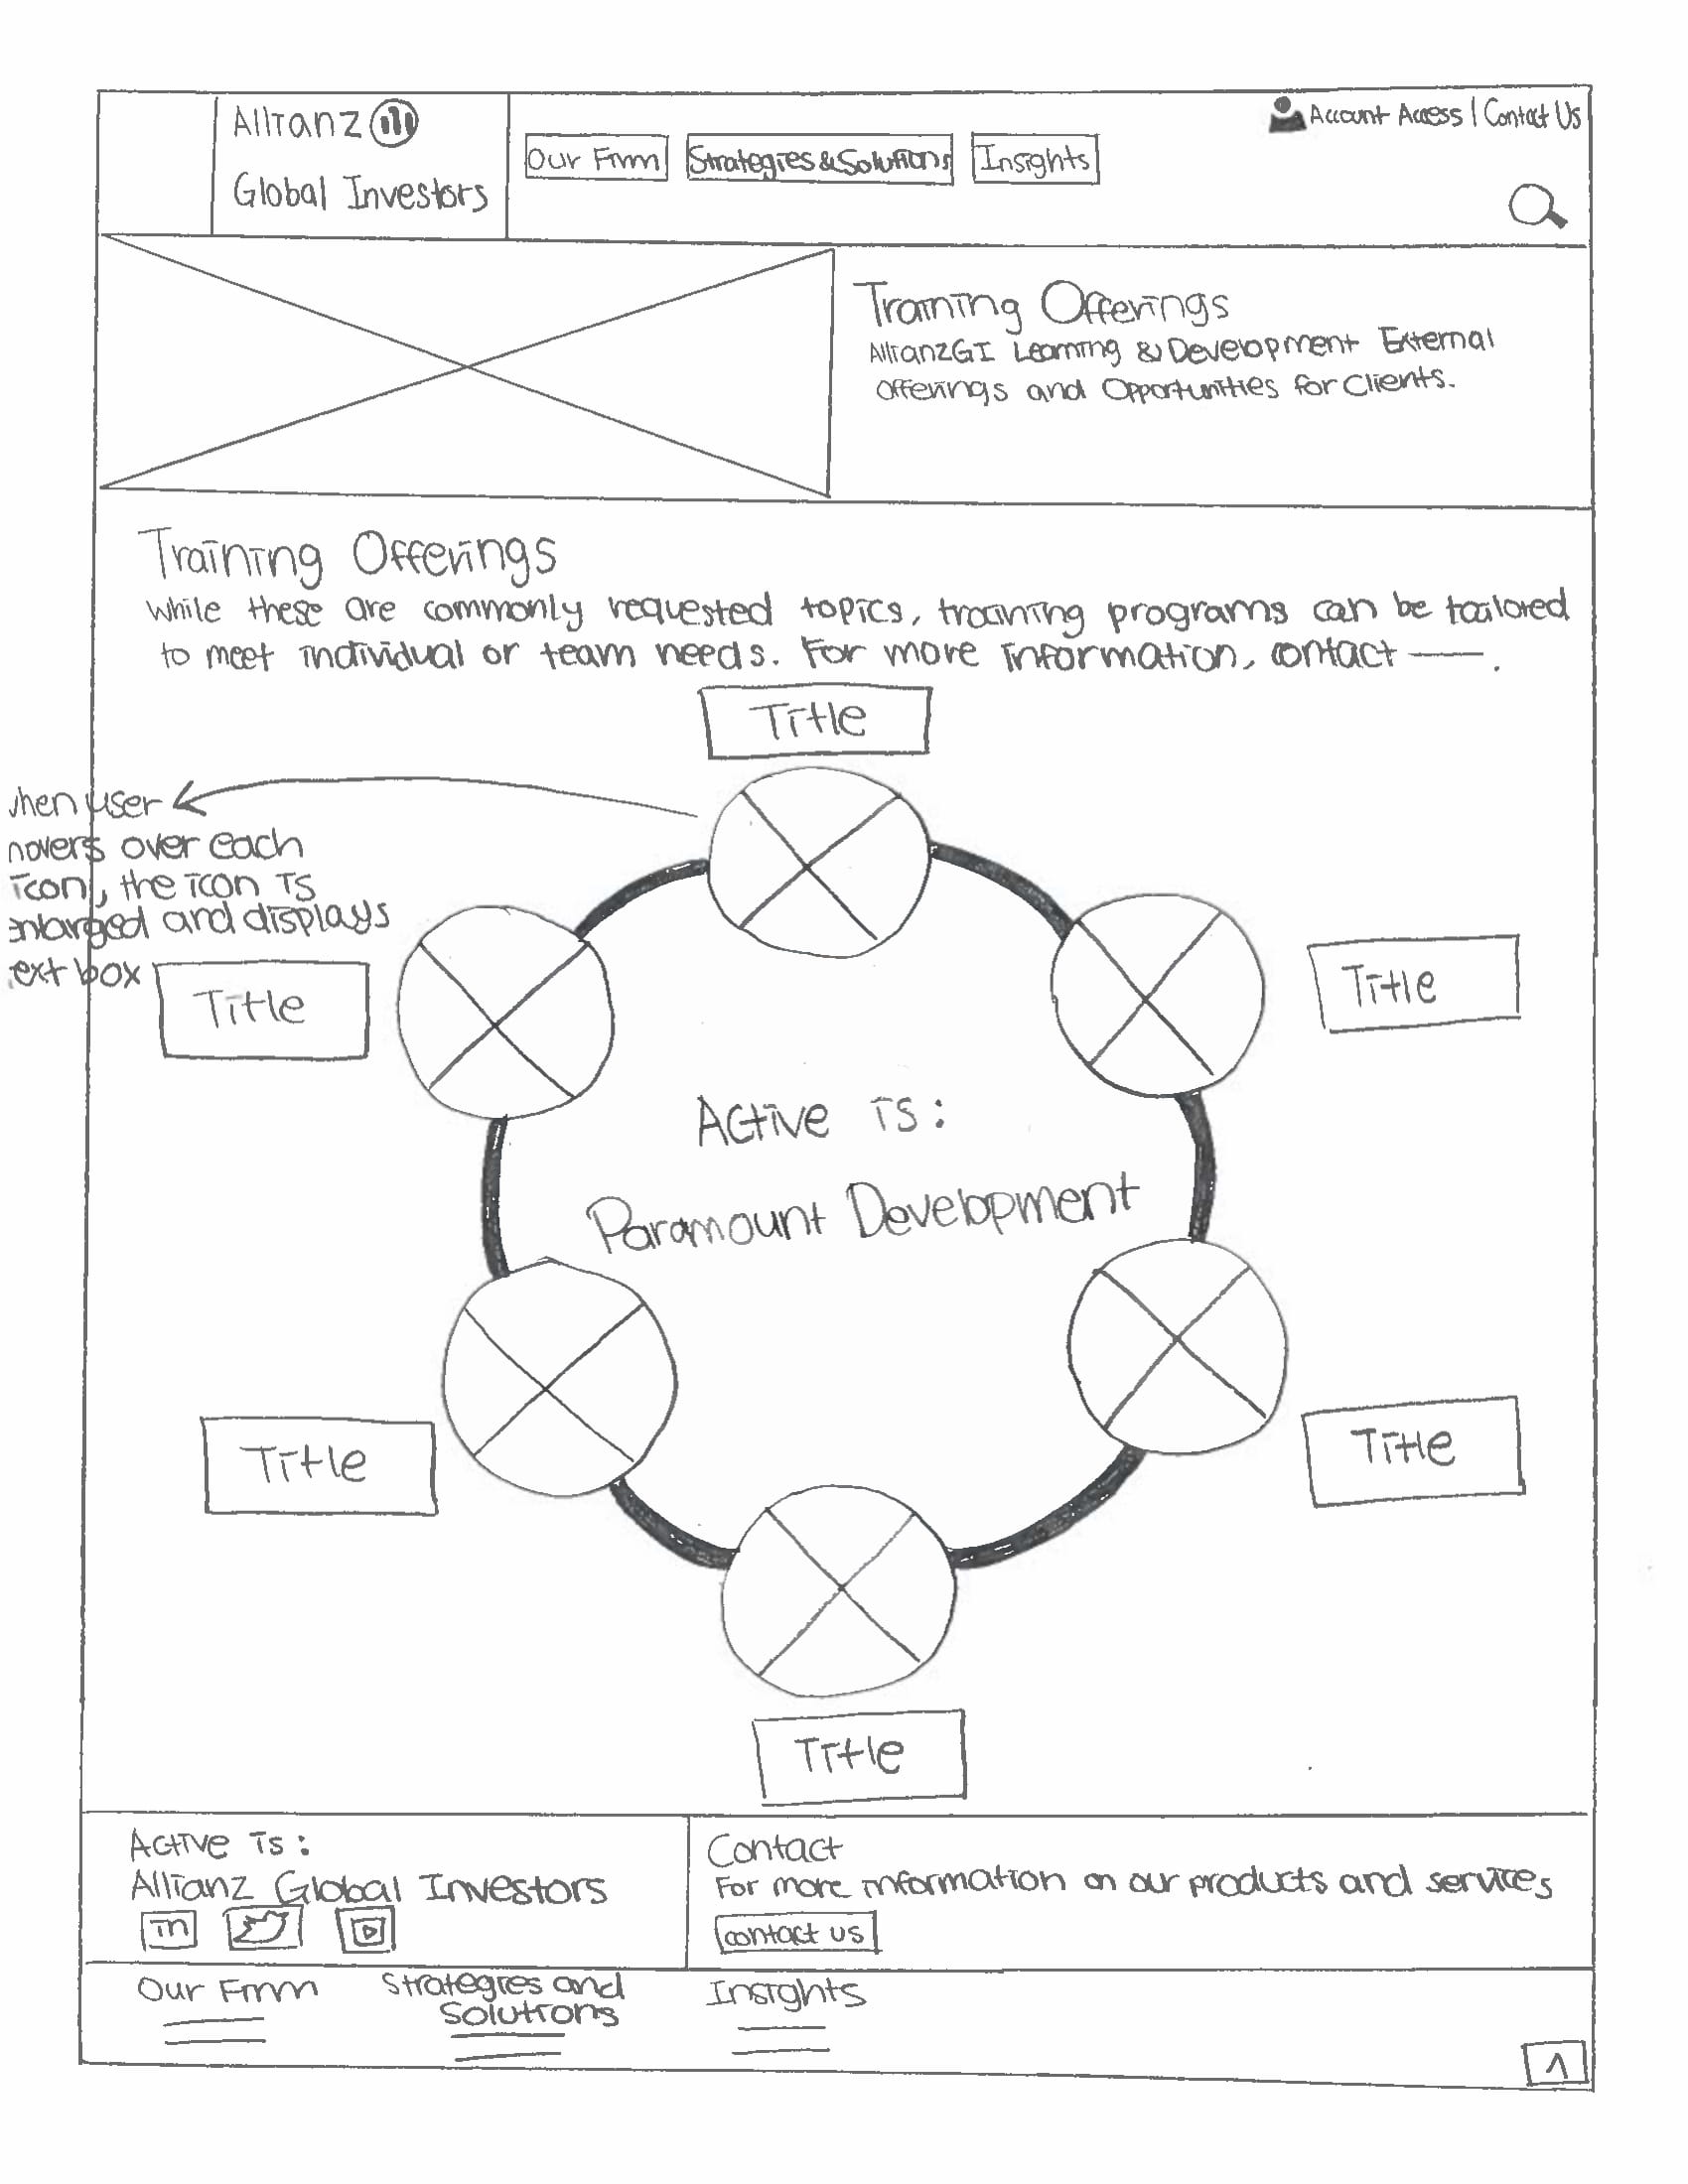 Allianz
Global Investors
Our Firm
Strategies & Solutions
Insights
Account Access | Contact Us
Training Offerings
AllianzGI Learning & Development External
Offerings and Opportunities for Clients.
Training Offerings
While these are commonly requested topics, training programs can be tailored
to meet individual or team needs. For more information, contact ——.
Title
when user
hovers over each
icon, the icon is
enlarged and displays
text box
Title
Title
Active is:
Paramount Development
Title
Title
Title
Active is:
Allianz Global Investors
in
Contact
For more information on our products and services
contact us
Our Firm
Strategies and
Solutions
Insights